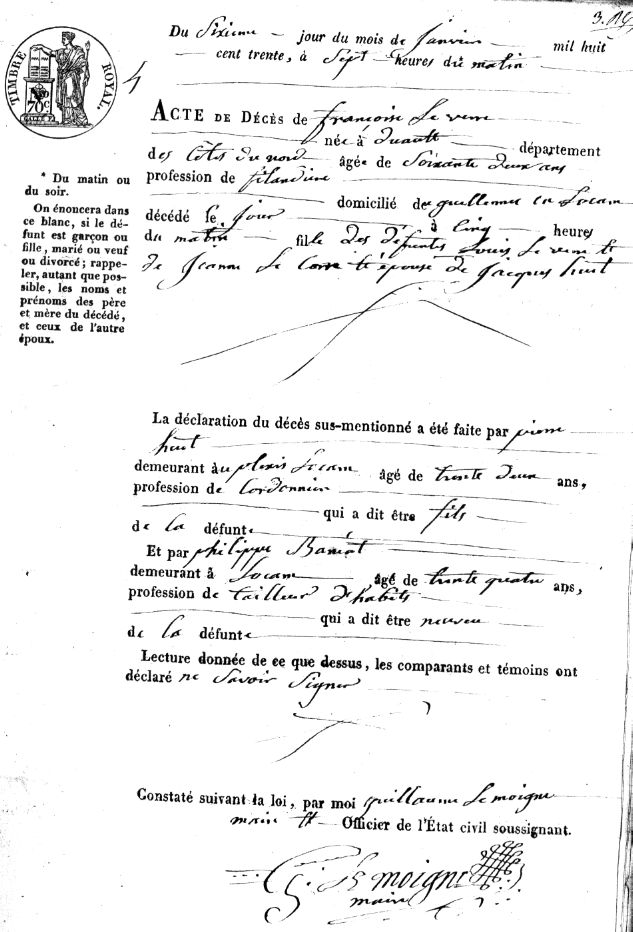 3.
Du Sixieme jour du mois de Janvier mil huit
cent trente, à Sept heures du matin
TIMBRE ROYAL.
70c
ACTE DE DÉCÈS de françoise Le verre
née à duault département
des Côtes du nord âgée de Soixante deux ans
profession de filandiere
domicilié de guellennec en Locarn
décédé le jour à Cinq heures
du matin fille des défunts Louis Le verre et
de Jeanne Le Corre épouse de Jacques huet
* Du matin ou
du soir.
On énoncera dans
ce blanc, si le dé-
funt est garçon ou
fille, marié ou veuf
ou divorcé; rappe-
ler, autant que pos-
sible, les noms et
prénoms des père
et mère du décédé,
et ceux de l'autre
époux.
La déclaration du décès sus-mentionné a été faite par pierre
huet
demeurant à Locarn âgé de trente deux ans,
profession de Cordonnier
qui a dit être fils
de la défunte
Et par philippe
demeurant à Locarn âgé de trente quatre ans,
profession de tailleur d'habits
qui a dit être neveu
de la défunte
Lecture donnée de ce que dessus, les comparants et témoins ont
déclaré ne Savoir Signer
Constaté suivant la loi, par moi guillaume Le moigne
maire Officier de l'État civil soussignant.
G. Le moigne
maire